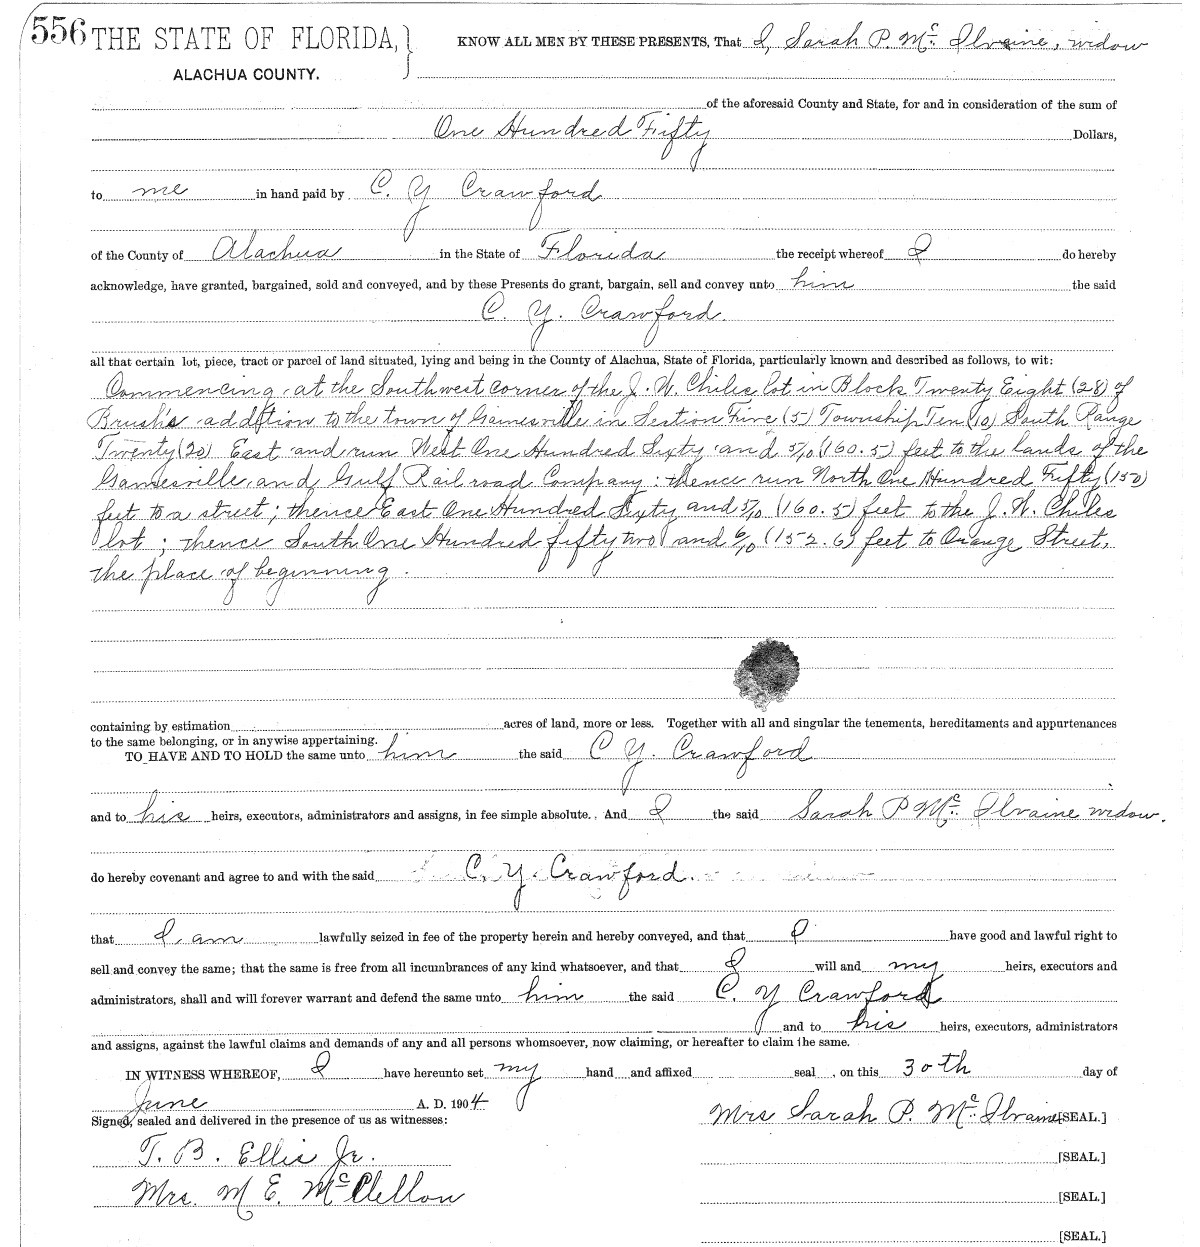 556 THE STATE OF FLORIDA, } KNOW ALL MEN BY THESE PRESENTS, That I, Sarah P. McIlvaine, widow
ALACHUA COUNTY.
of the aforesaid County and State, for and in consideration of the sum of
One Hundred Fifty Dollars,
to me in hand paid by C. Y Crawford
of the County of Alachua in the State of Florida the receipt whereof I do hereby
acknowledge, have granted, bargained, sold and conveyed, and by these Presents do grant, bargain, sell and convey unto him the said
C. Y. Crawford.
all that certain lot, piece, tract or parcel of land situated, lying and being in the County of Alachua, State of Florida, particularly known and described as follows, to wit:
Commencing at the Southwest corner of the J. W. Chiles lot in Block Twenty Eight (28) of
Brush's addition to the town of Gainesville in Section Five (5) Township Ten (10) South Range
Twenty (20) East and run West One Hundred Sixty and 5/10 (160.5) feet to the lands of the
Gainesville and Gulf Railroad Company; thence run North One Hundred Fifty (150)
feet to a street; thence East One Hundred Sixty and 5/10 (160.5) feet to the J. W. Chiles
lot; thence South One Hundred fifty two and 6/10 (152.6) feet to Orange Street,
the place of beginning.
containing by estimation acres of land, more or less. Together with all and singular the tenements, hereditaments and appurtenances
to the same belonging, or in anywise appertaining.
TO HAVE AND TO HOLD the same unto him the said C Y. Crawford
and to his heirs, executors, administrators and assigns, in fee simple absolute. And I the said Sarah P McIlvaine widow.
do hereby covenant and agree to and with the said C. Y. Crawford.
that I am lawfully seized in fee of the property herein and hereby conveyed, and that I have good and lawful right to
sell and convey the same; that the same is free from all incumbrances of any kind whatsoever, and that I will and my heirs, executors and
administrators, shall and will forever warrant and defend the same unto him the said C. Y Crawford
and to his heirs, executors, administrators
and assigns, against the lawful claims and demands of any and all persons whomsoever, now claiming, or hereafter to claim the same.
IN WITNESS WHEREOF, I have hereunto set my hand and affixed seal, on this 30th day of
June A. D. 1904
Signed, sealed and delivered in the presence of us as witnesses: Mrs Sarah P. McIlvaine [SEAL.]
T. B. Ellis Jr. [SEAL.]
Mrs. M E. McClellon [SEAL.]
[SEAL.]